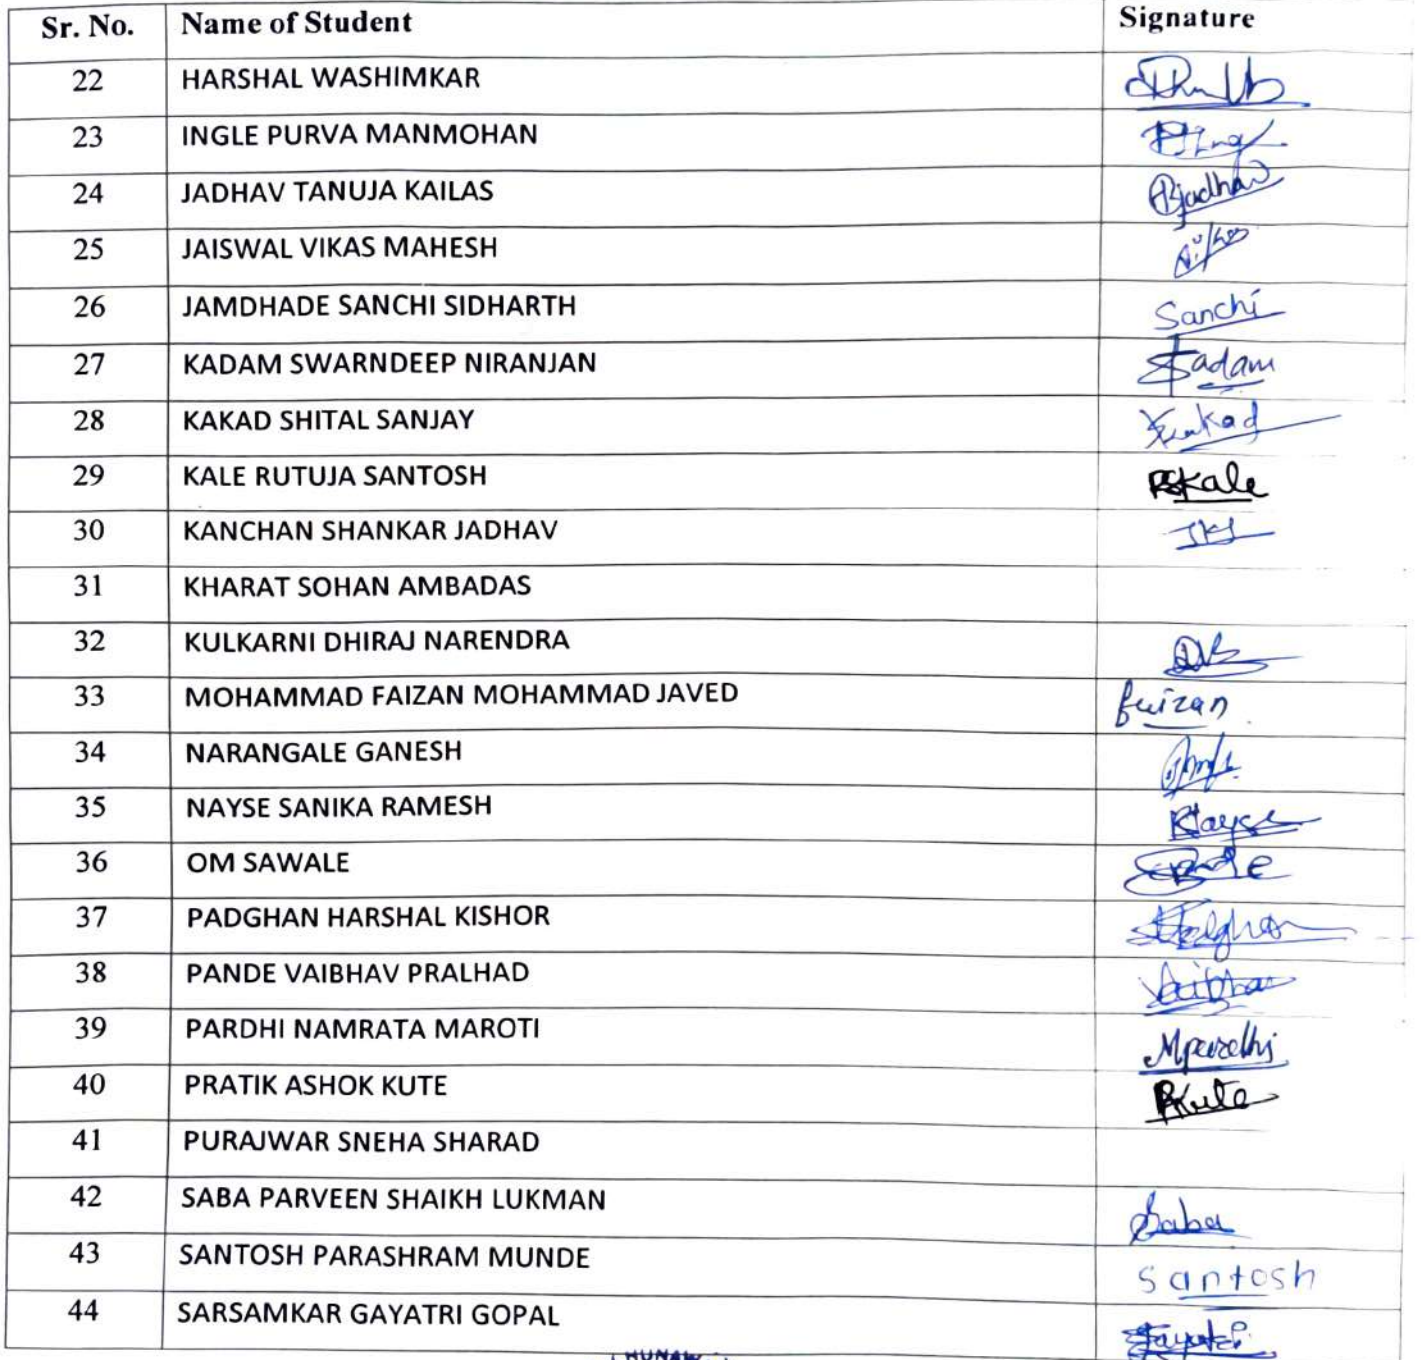 Sr. No. Name of Student Signature
22 HARSHAL WASHIMKAR
23 INGLE PURVA MANMOHAN
24 JADHAV TANUJA KAILAS Jadhav
25 JAISWAL VIKAS MAHESH
26 JAMDHADE SANCHI SIDHARTH Sanchi
27 KADAM SWARNDEEP NIRANJAN Kadam
28 KAKAD SHITAL SANJAY
29 KALE RUTUJA SANTOSH RSKale
30 KANCHAN SHANKAR JADHAV
31 KHARAT SOHAN AMBADAS
32 KULKARNI DHIRAJ NARENDRA
33 MOHAMMAD FAIZAN MOHAMMAD JAVED faizan
34 NARANGALE GANESH
35 NAYSE SANIKA RAMESH
36 OM SAWALE
37 PADGHAN HARSHAL KISHOR
38 PANDE VAIBHAV PRALHAD Vaibhav
39 PARDHI NAMRATA MAROTI Mpardhi
40 PRATIK ASHOK KUTE PKute
41 PURAJWAR SNEHA SHARAD
42 SABA PARVEEN SHAIKH LUKMAN Saba
43 SANTOSH PARASHRAM MUNDE Santosh
44 SARSAMKAR GAYATRI GOPAL Gayatri